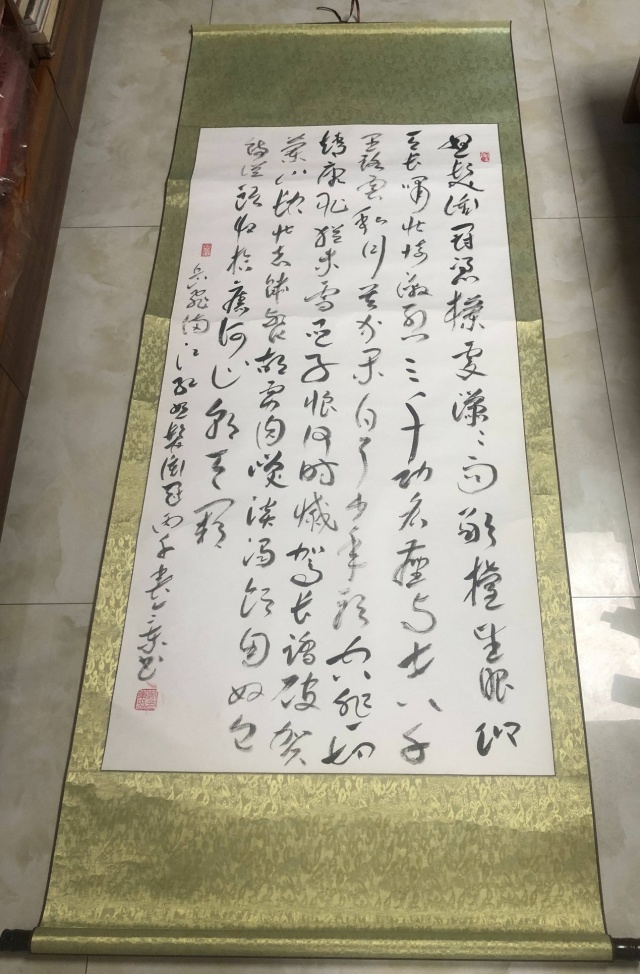 怒髮衝冠憑欄處瀟瀟雨歇擡望眼仰
天長嘯壯懷激烈三十功名塵與土八千
里路雲和月莫等閑白了少年頭空悲切
靖康恥猶未雪臣子恨何時滅駕長踏破賀
蘭山缺壯志飢餐胡虜肉笑談渴飲匈奴血
待從頭收拾舊河山朝天闕
岳飛滿江紅怒髮衝冠丙午書